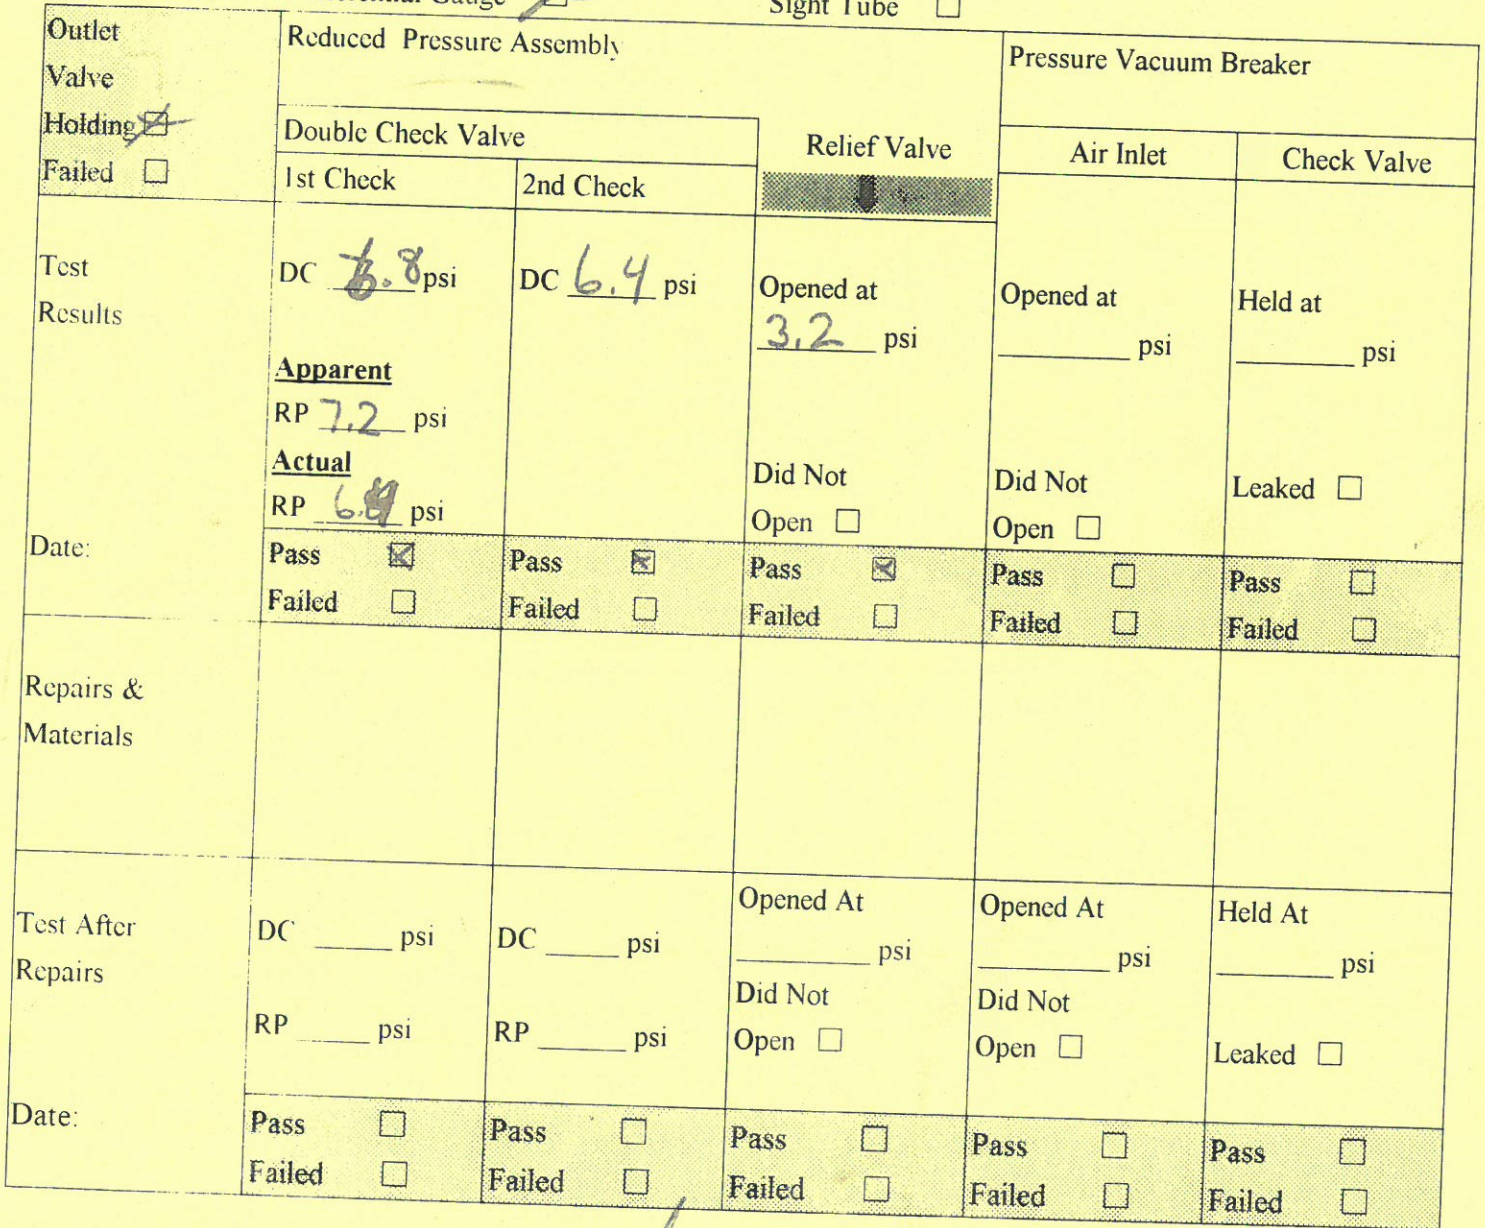 Gauge Sight Tube
Outlet
Valve
Holding
Failed
Reduced Pressure Assembly
Pressure Vacuum Breaker
Double Check Valve
Relief Valve
Air Inlet
Check Valve
1st Check
2nd Check
Test
Results
DC .8 psi
DC 6.4 psi
Opened at
3.2 psi
Opened at
psi
Held at
psi
Apparent
RP 7.2 psi
Actual
RP psi
Did Not
Open
Did Not
Open
Leaked
Date:
Pass
Failed
Pass
Failed
Pass
Failed
Pass
Failed
Pass
Failed
Repairs &
Materials
Test After
Repairs
DC psi
RP psi
DC psi
RP psi
Opened At
psi
Did Not
Open
Opened At
psi
Did Not
Open
Held At
psi
Leaked
Date:
Pass
Failed
Pass
Failed
Pass
Failed
Pass
Failed
Pass
Failed